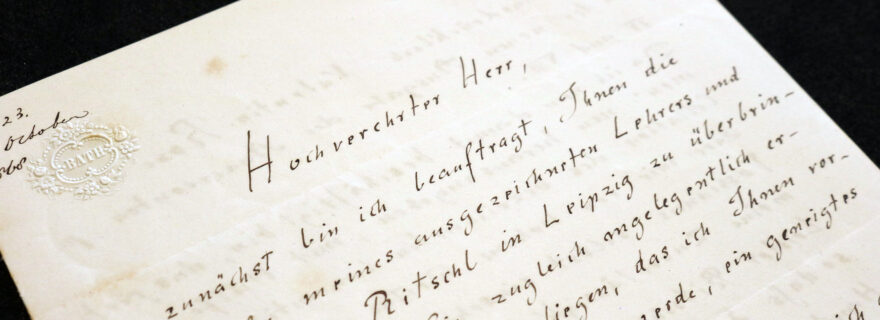 23.
October
868
BATH
Hochverehrter Herr,
zunächst bin ich beauftragt, Ihnen die
meines ausgezeichneten Lehrers und
Ritschl in Leipzig zu überbrin-
zugleich angelegentlich er-
liegen, das ich Ihnen vor-
erde, ein geneigtes